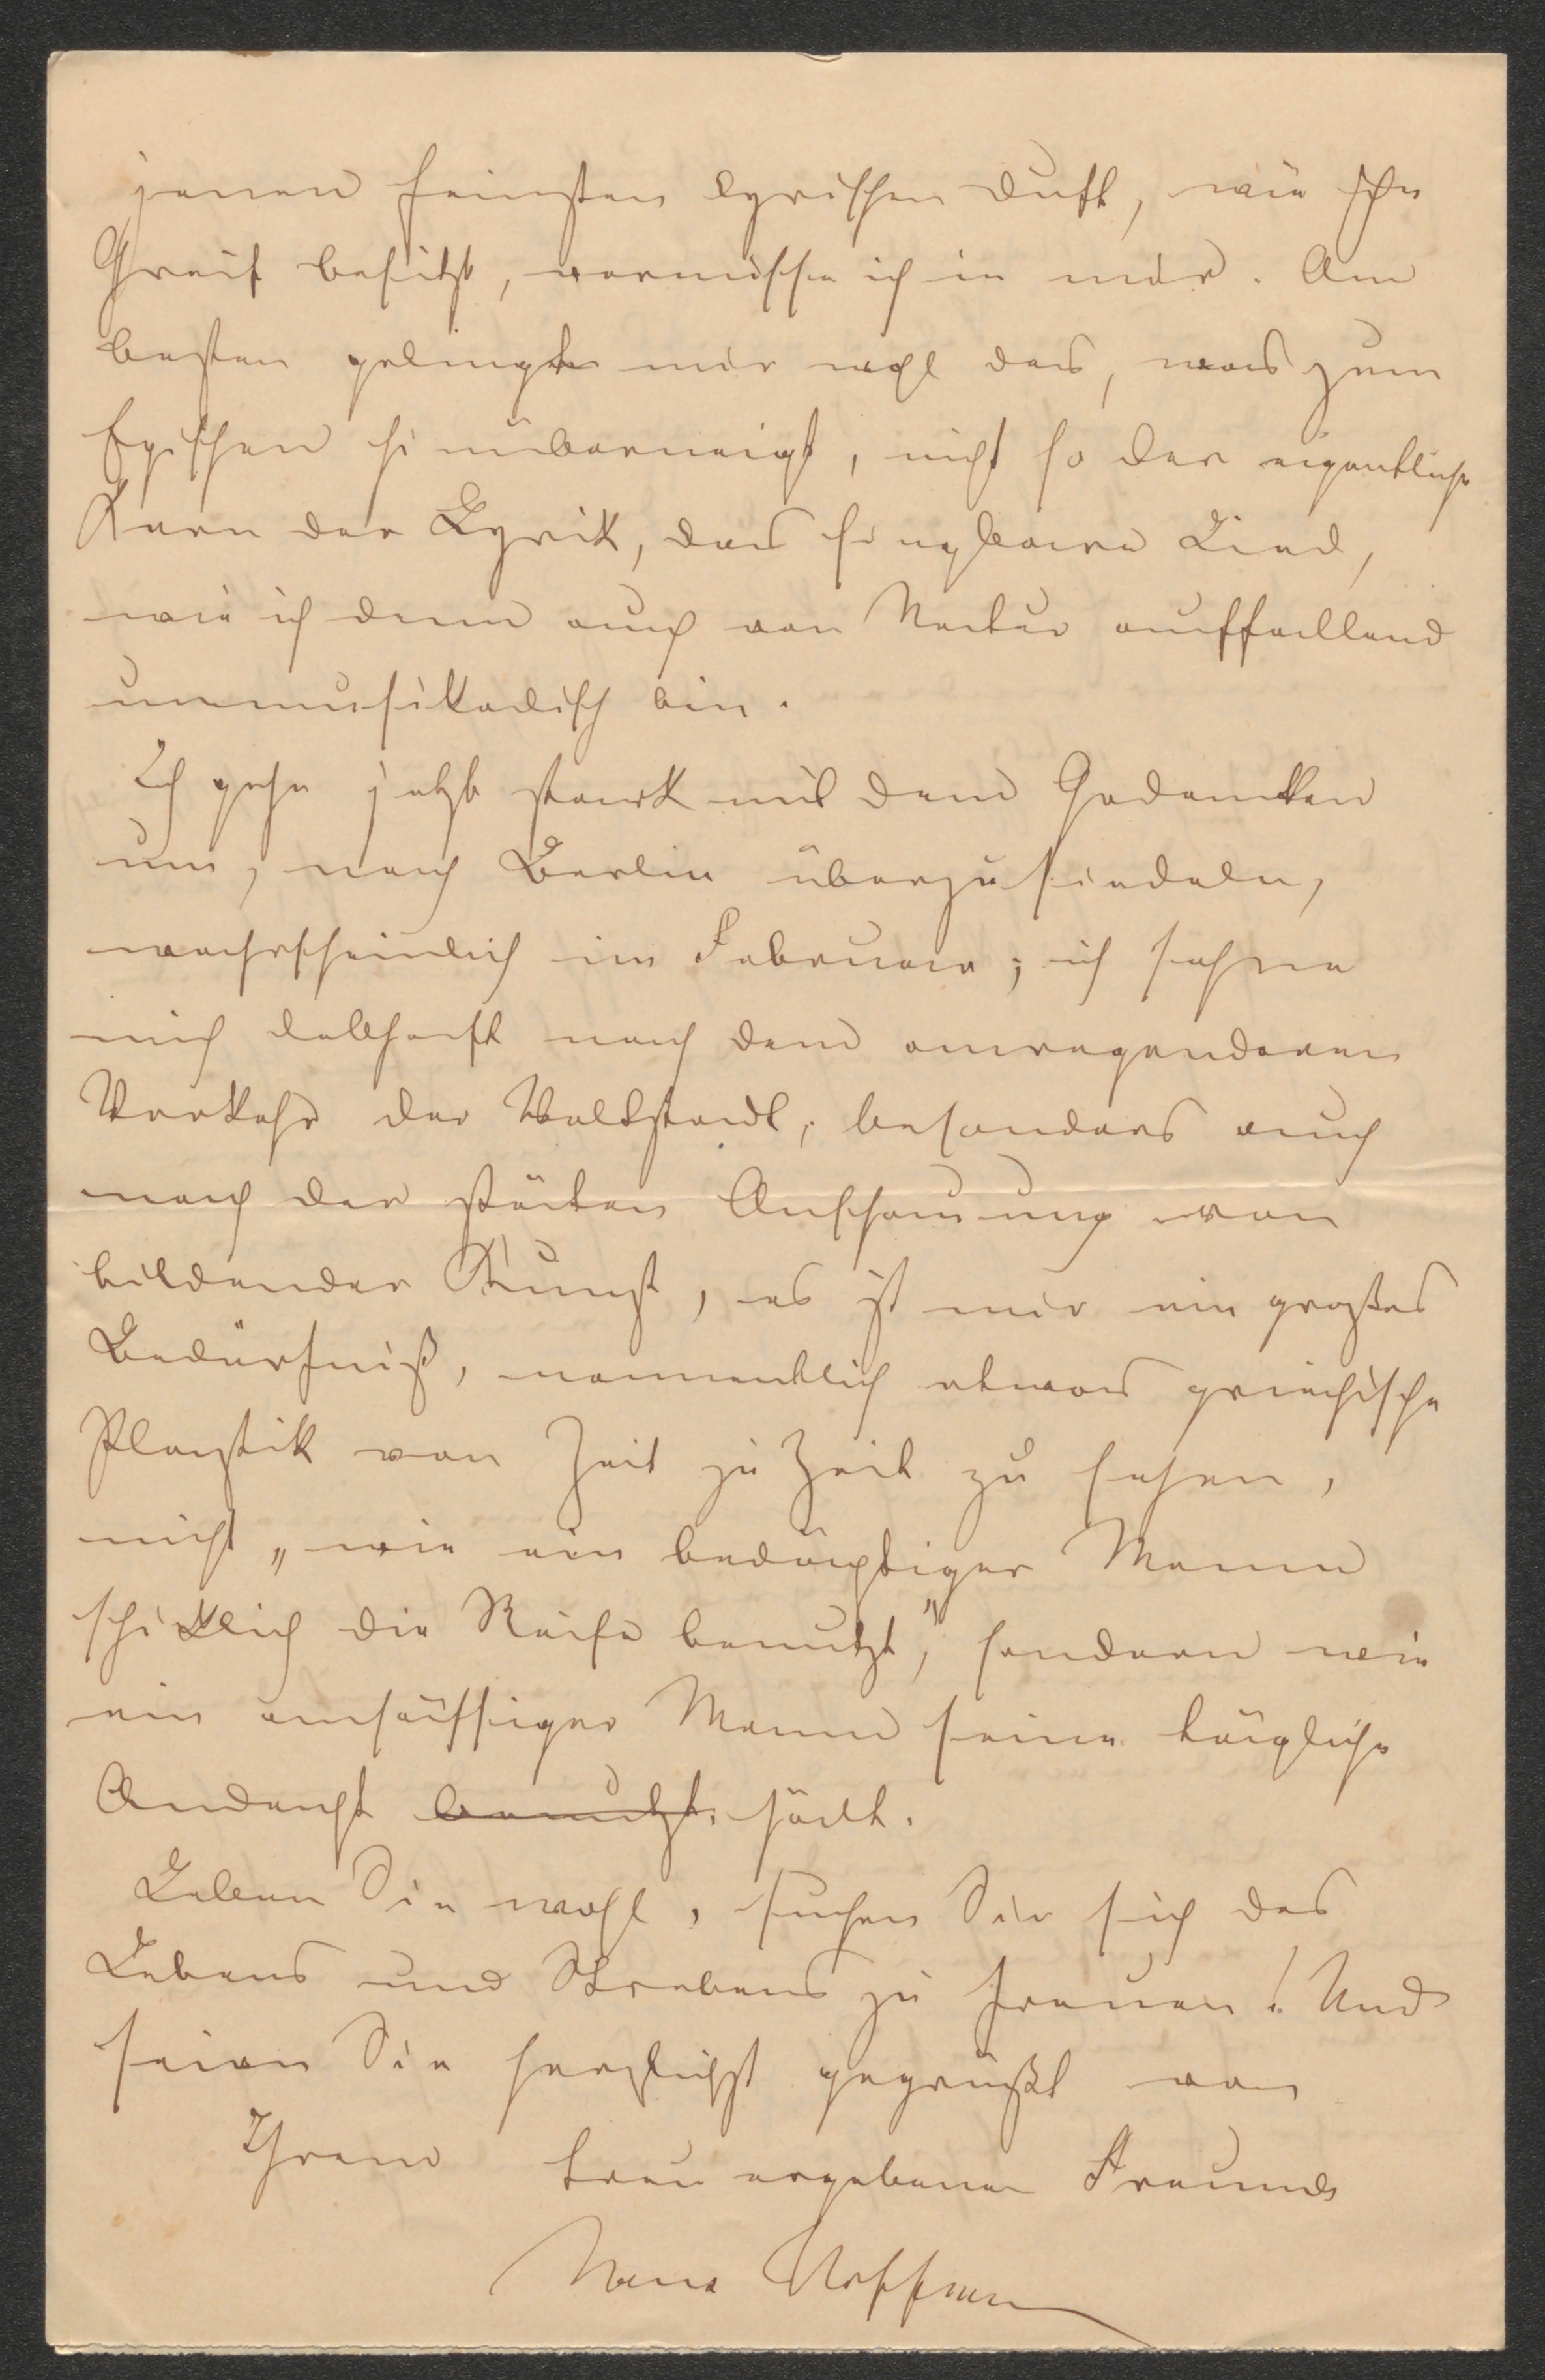 jenen feinsten lyrischen Duft, wie ihn
Greif besitzt, vermisse ich in mir. Am
besten gelingt mir wohl das, was zum
Epischen hinüberneigt, nicht so der eigentliche
Kern der Lyrik, das singbare Lied,
wie ich denn auch von Natur auffallend
unmusikalisch bin.
Ich gehe jetzt stark mit dem Gedanken
um, nach Berlin überzusiedeln,
wahrscheinlich im Februar; ich sehne
mich lebhaft nach dem anregenderen
Verkehr der Weltstadt, besonders auch
nach der stäten Anschauung von
bildender Kunst, es ist mir ein großes
Bedürfniß, namentlich etwas griechische
Plastik von Zeit zu Zeit zu sehen,
nicht „wie ein bedächtiger Mann
schicklich die Reise benutzt", sondern wie
ein ansässiger Mann seine tägliche
Andacht benutzt. hält.
Leben Sie wohl, suchen Sie sich des
Lebens und Strebens zu freuen! Und
seien Sie herzlichst gegrüßt von
Ihrem treu ergebenen Freunde
Hans Hoffmann